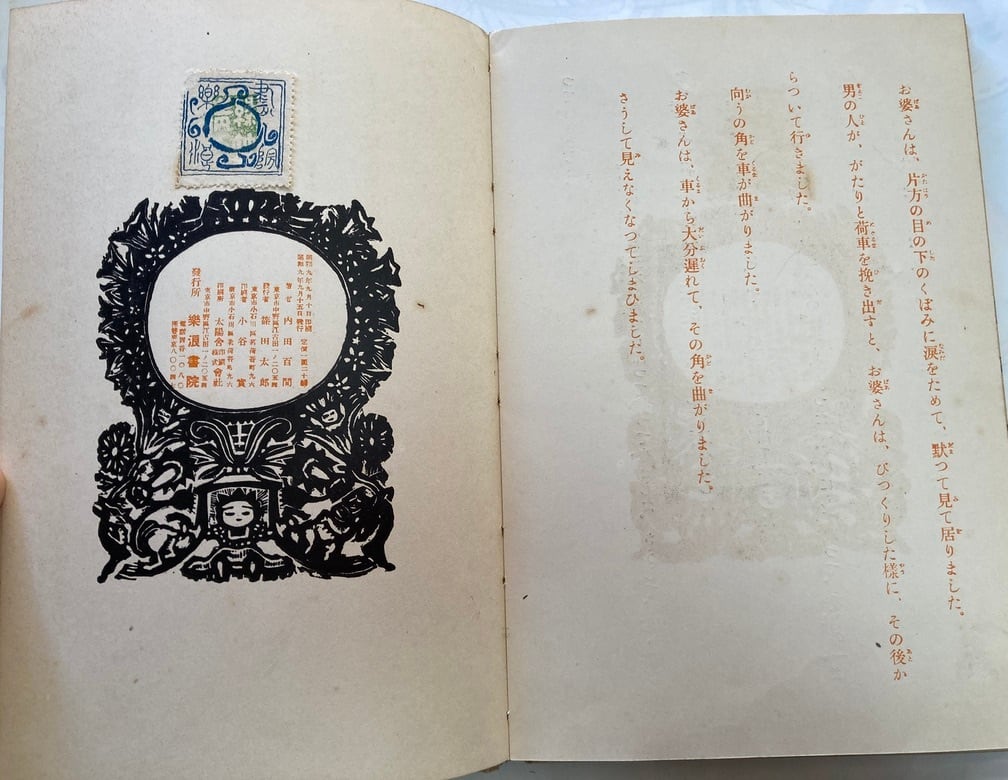 お婆さんは、片方の目の下のくぼみに涙をためて、默つて見て居りました。
男の人が、がたりと荷車を挽き出すと、お婆さんは、びつくりした樣に、その後か
らついて行きました。
向うの角を車が曲がりました。
お婆さんは、車から大分遲れて、その角を曲がりました。
さうして見えなくなつてしまひました。
昭和九年九月十日印刷
昭和九年九月十五日發行
定價一圓二十錢
著者 內田百間
發行者 能田太郎
印刷者 小谷
印刷所 太陽舍印刷株式會社
發行所 樂浪書院